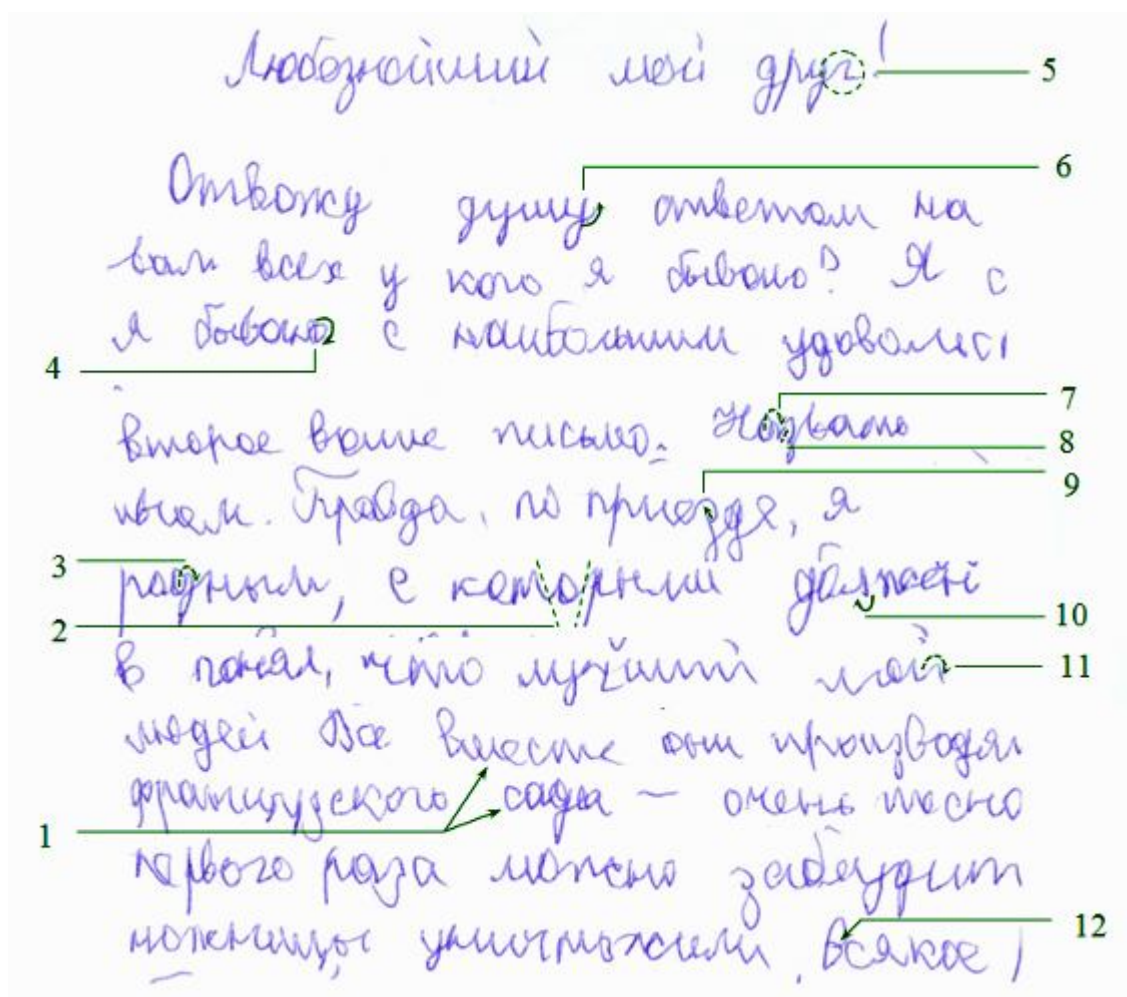 Любезнейший мой друг! 5
6
Отвожу душу ответом на
вам всех у кого я бываю? Я с
я бываю с наибольшим удовольст
4
7
второе ваше письмо. Назвать
8
9
Правда, по приезде, я
3
родным, с которыми должен
2 10
в понял, что лучший мой 11
людей Все вместе они производя
французского сада — очень тесно
1
первого раза можно заблудит
12
ножницы уничтожили всякое